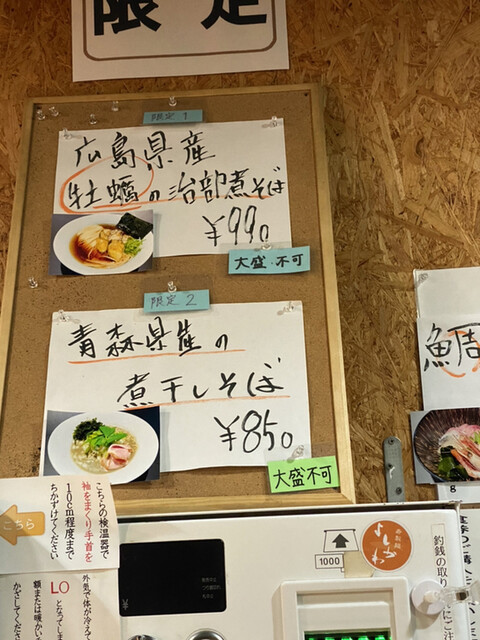 限定
限定 1
広島県産
牡蠣の治部煮そば
¥990
大盛 不可
限定 2
青森県産の
煮干しそば
¥850
大盛不可
鯛
こちら
こちらの検温器で
袖をまくり手首を
10cm程度まで
ちかずけてください
外気で体が冷えて
LO
となってしま
額または暖かい
かざしてくださ
1000
よしかわ
釣銭の取り
¥